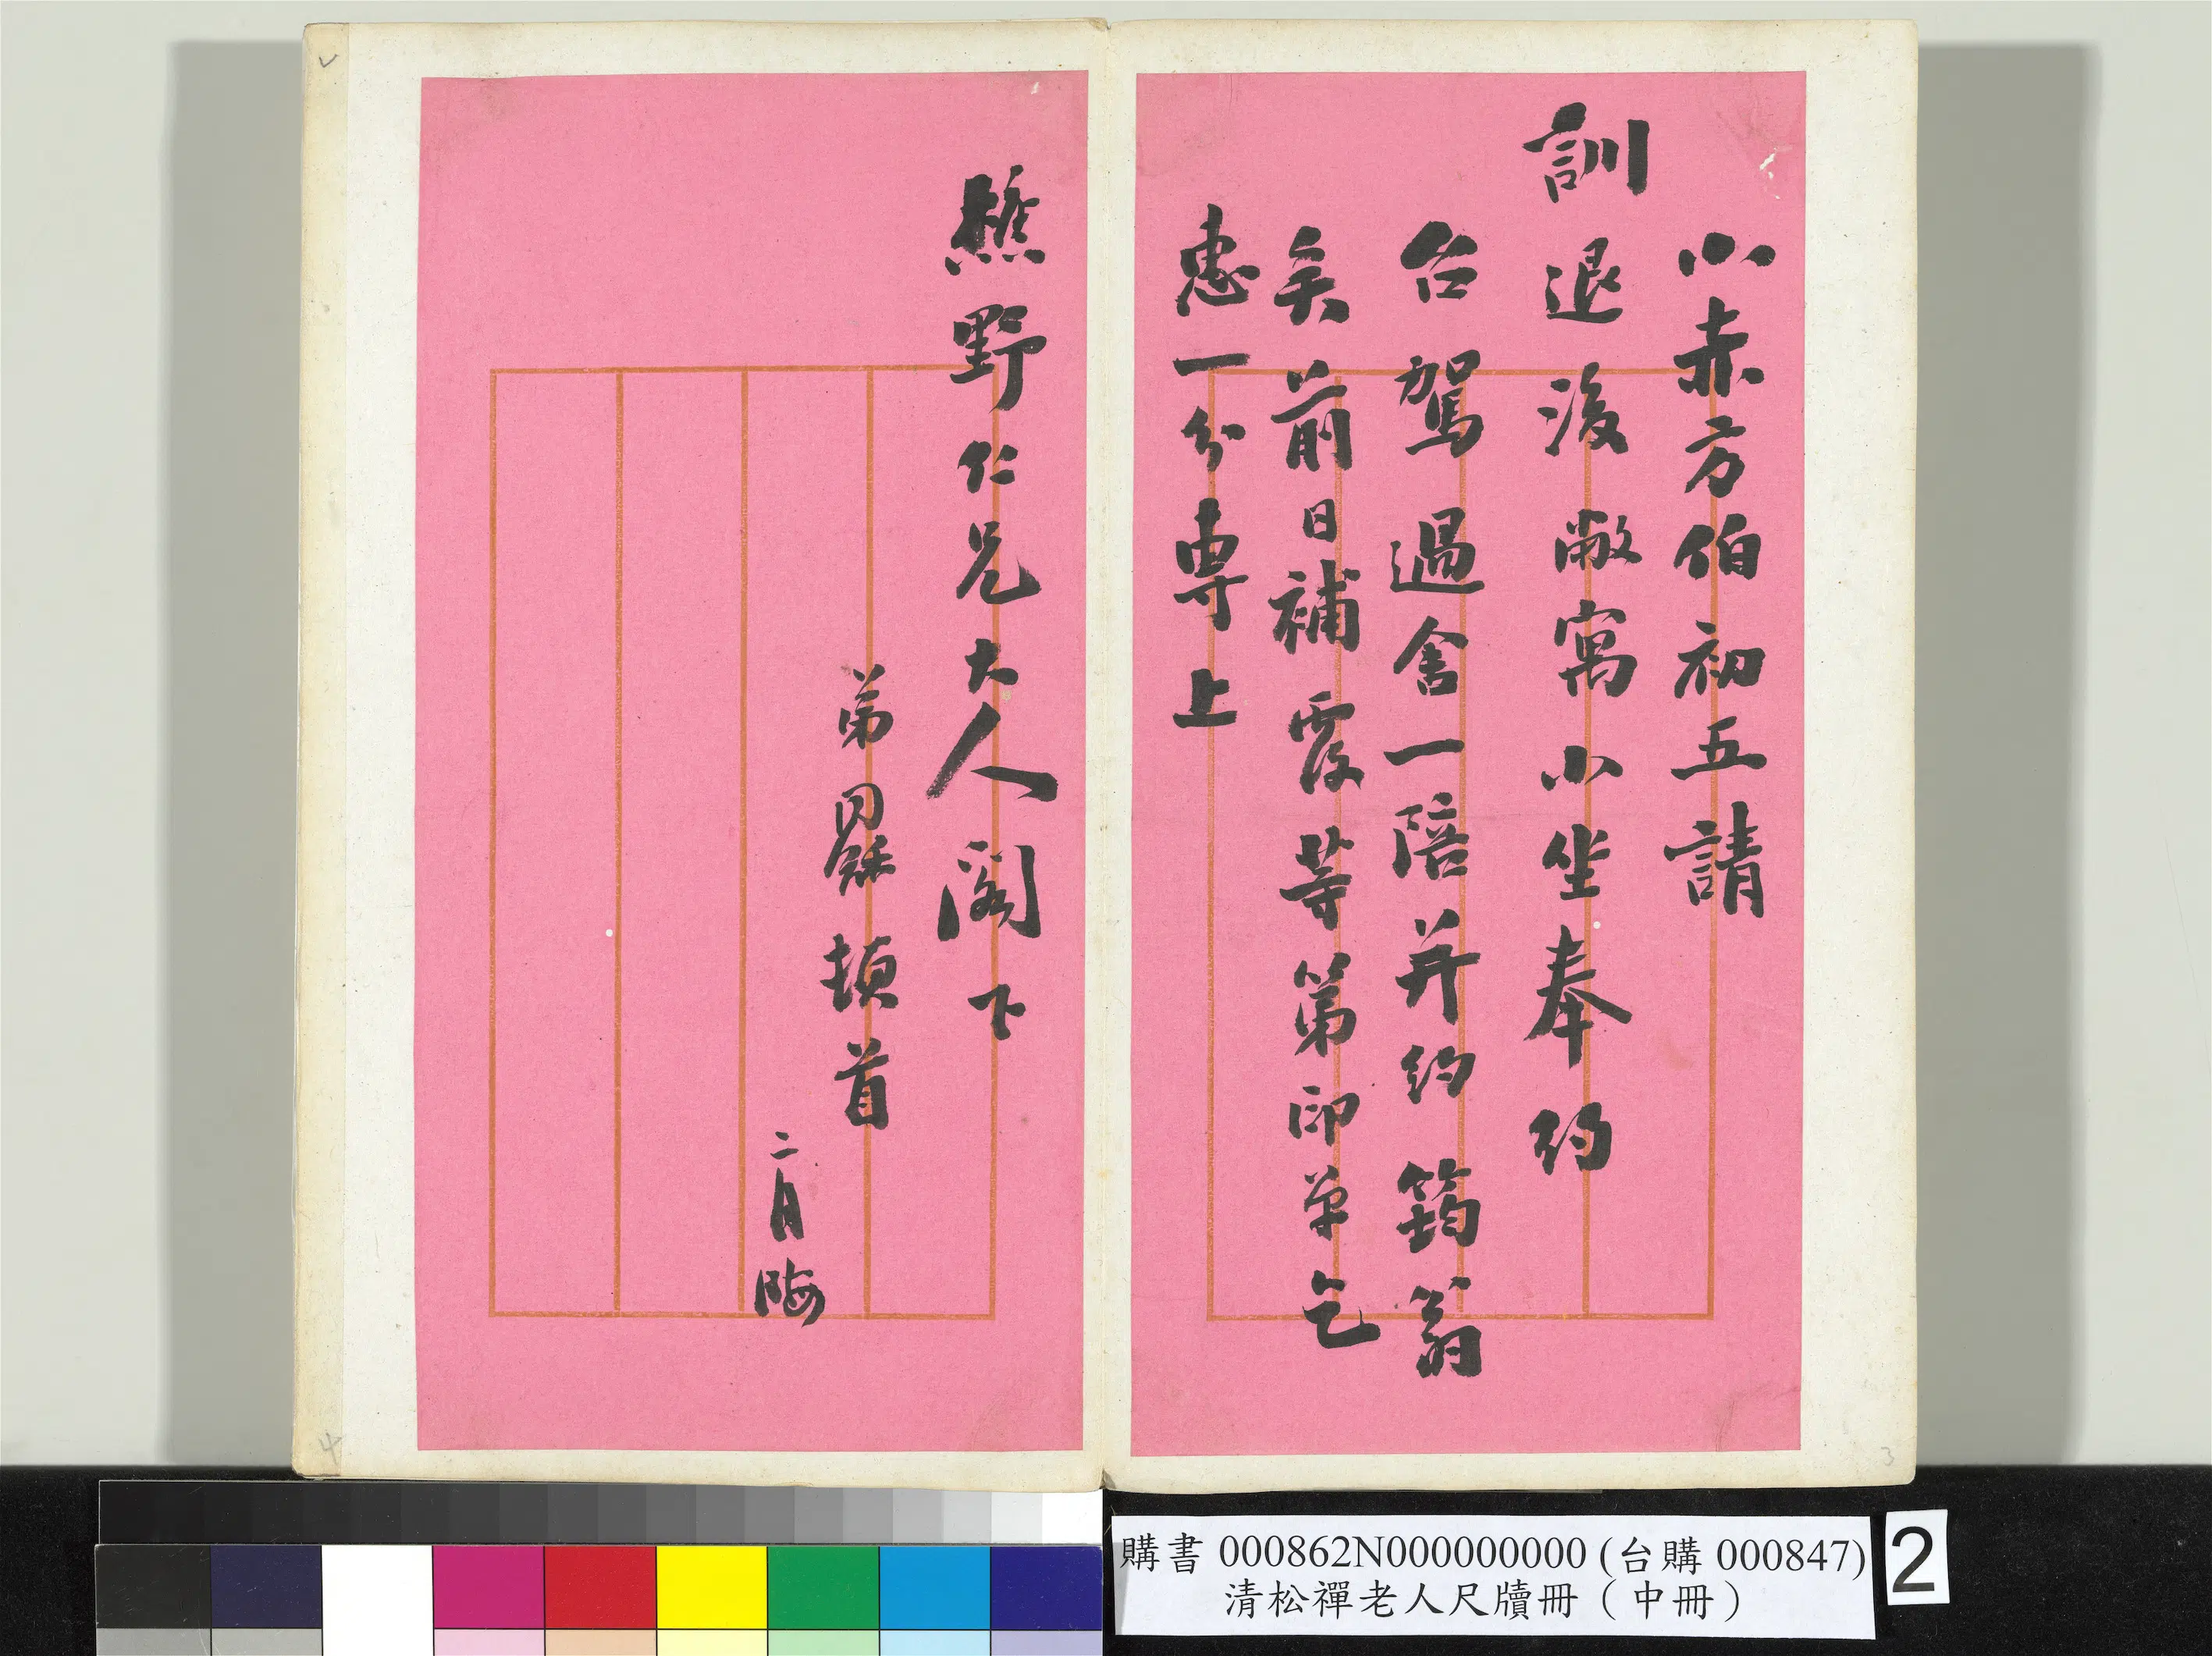 小赤方伯初五請
訓退後敝寓小坐奉約
台駕過舍一陪并約筠翁
矣前日補覆等第印單乞
惠一分專上
樵野仁兄大人閣下
弟同龢頓首
二月晦
購書 000862N000000000 (台購 000847)
清松禪老人尺牘冊（中冊）
2
3
4